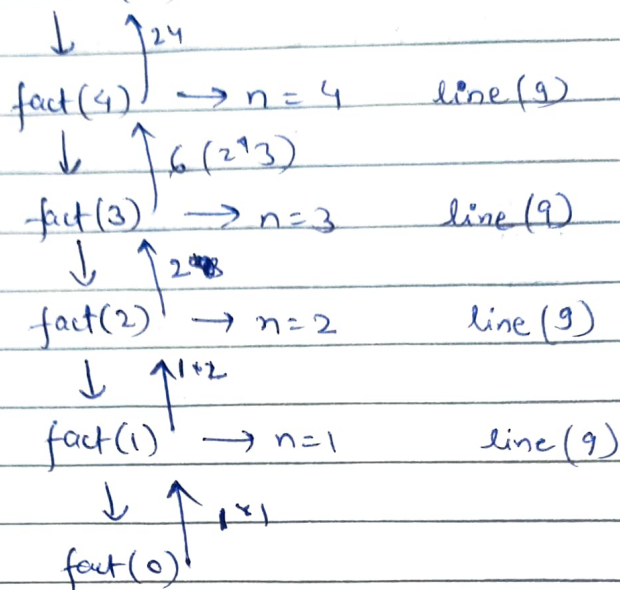 ↓ ↑ 24
fact(4) → n = 4 line(9)
↓ ↑ 6 (2*3)
fact(3) → n=3 line(9)
↓ ↑ 2
fact(2) → n=2 line(9)
↓ ↑ 1*2
fact(1) → n=1 line(9)
↓ ↑ 1*1
fact(0)